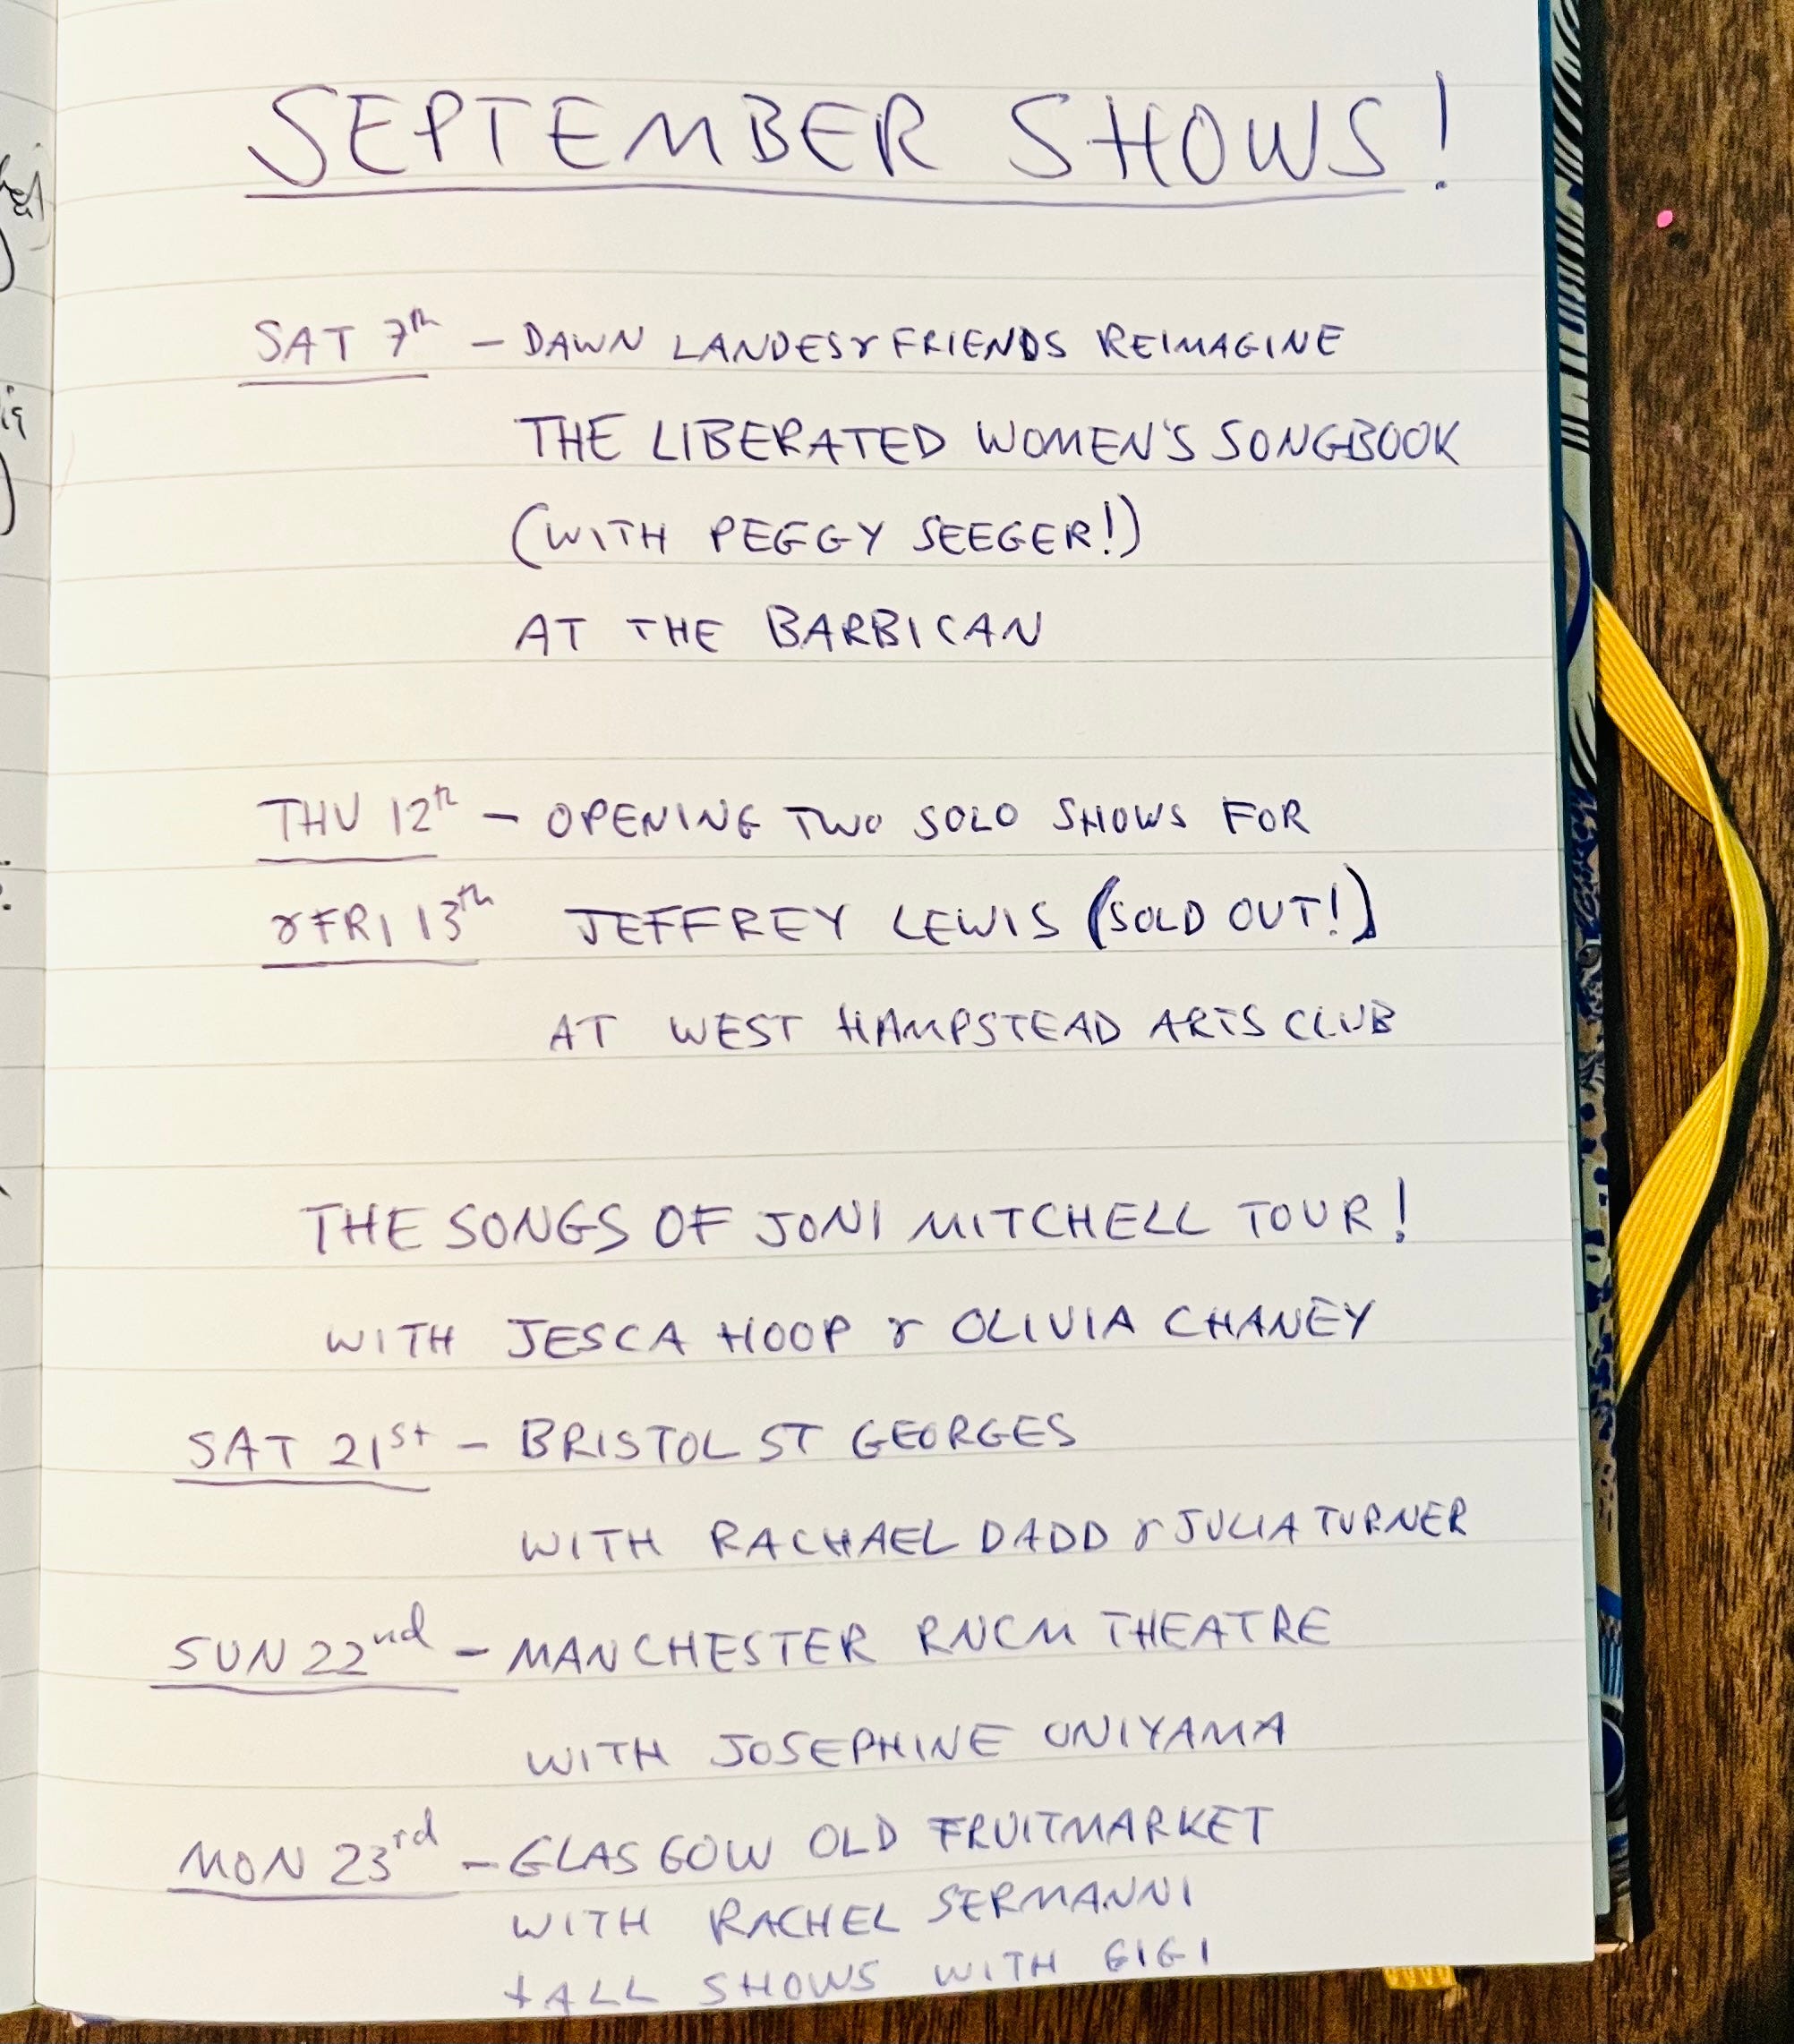 SEPTEMBER SHOWS!
SAT 7th - DAWN LANDES & FRIENDS REIMAGINE
THE LIBERATED WOMEN'S SONGBOOK
(WITH PEGGY SEEGER!)
AT THE BARBICAN
THU 12th - OPENING TWO SOLO SHOWS FOR
& FRI 13th JEFFREY LEWIS (SOLD OUT!)
AT WEST HAMPSTEAD ARTS CLUB
THE SONGS OF JONI MITCHELL TOUR!
WITH JESCA HOOP & OLIVIA CHANEY
SAT 21st - BRISTOL ST GEORGES
WITH RACHAEL DADD & JULIA TURNER
SUN 22nd - MANCHESTER RNCM THEATRE
WITH JOSEPHINE ONIYAMA
MON 23rd - GLASGOW OLD FRUITMARKET
WITH RACHEL SERMANNI
+ ALL SHOWS WITH GIGI